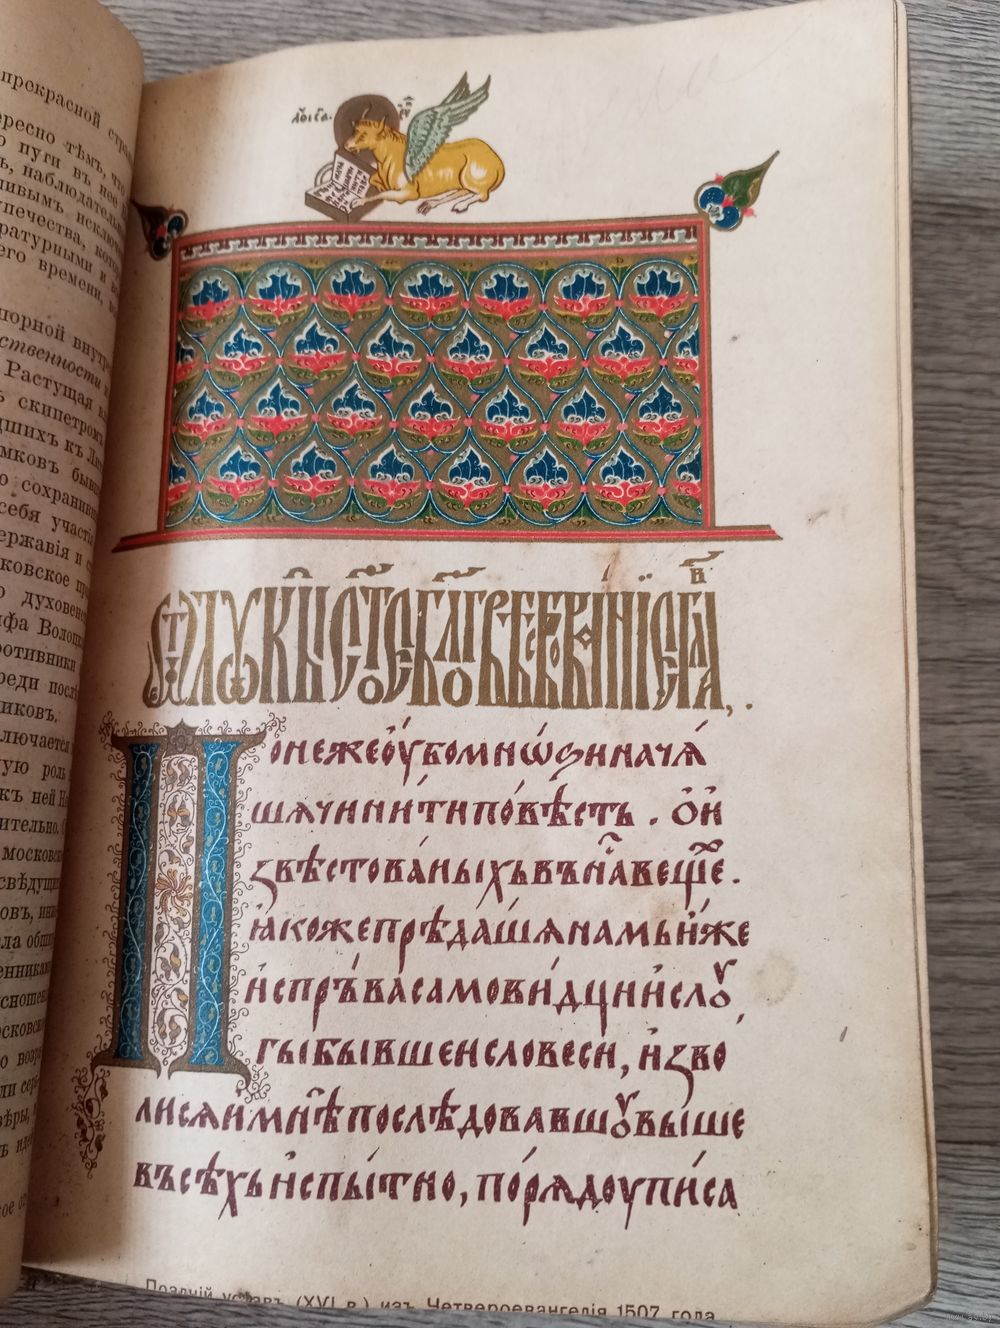 прекрасной
ересно тѣмъ, что
о пуги въ нее
ь, наблюдательн
ливымъ исключ
упечества, кото
ратурными и
его времени,
порной внутре
ственности
Растущая
ъ скипетромъ
дшихъ къ Лит
мковъ бывш
о сохранивш
себя участі
ержавія и
ковское пр
о духовен
ифа Волоц
ротивники
реди посл
иковъ.
лючается
ную роль
къ ней
ительно.
московск
свѣдущи
овъ,
ла общи
енниками
сношен
осковск
о возр
ли
вѣры,
ѿ лꙋки ст҃ое бл҃говѣствованїе гла҃ в҃,.
Понежеоу҆бомнѡѕиначѧ́
шѧчинитипо́вѣсть . ѻ҆и҆
звѣстова́ныхъвъна́свеще .
ꙗ҆кожепрѣда́шѧнамъи҆́же
и҆спръ́васамови́дцниислꙋ
гыбывшеисловеси, и҆зво
лисѧи҆мнѣ́послѣ́довавшꙋвы́ше
въсѣхъи҆спы́тно, по́рѧдоупи́са
Поздній уставъ (XVI в.) изъ Четвероевангелія 1507 года